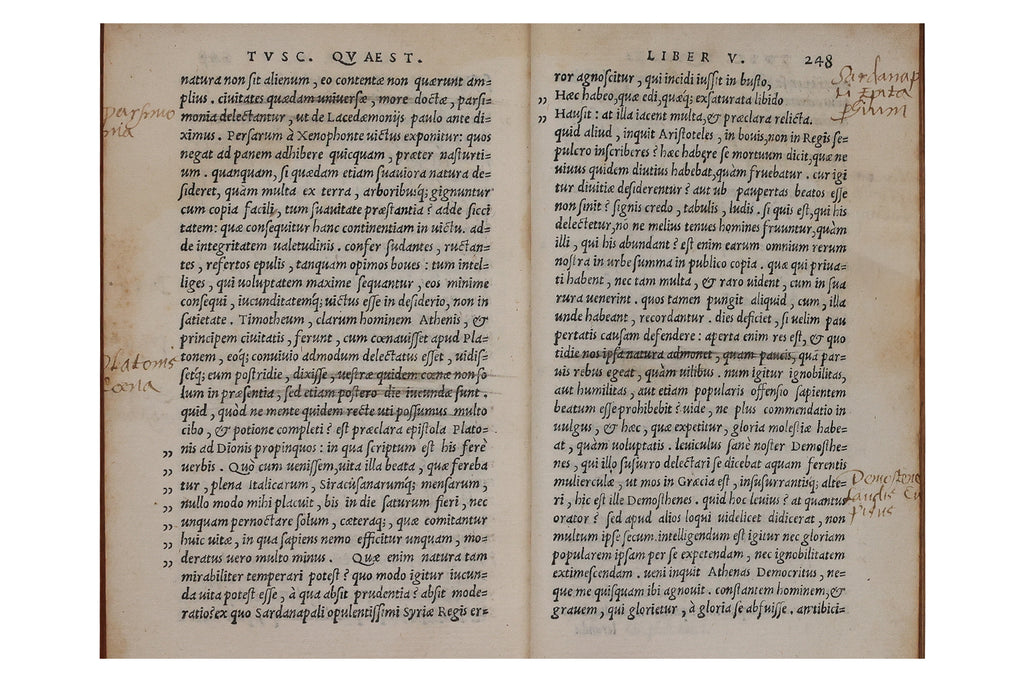 TVSC. QVAEST.
natura non sit alienum, eo contentæ non quærunt am=
plius. ciuitates quædam uniuersæ, more doctæ, parsi=
parsimo
nia
monia delectantur, ut de Lacedæmonijs paulo ante di=
ximus. Persarum à Xenophonte uictus exponitur: quos
negat ad panem adhibere quicquam, præter nasturti=
um. quanquam, si quædam etiam suauiora natura de=
sideret, quàm multa ex terra, arboribusq; gignuntur
cum copia facili, tum suauitate præstantia? adde sicci
tatem: quæ consequitur hanc continentiam in uictu. ad=
de integritatem ualetudinis. confer sudantes, ructan=
tes, refertos epulis, tanquam opimos boues: tum intel=
liges, qui uoluptatem maxime sequantur, eos minime
consequi, iucunditatemq; uictus esse in desiderio, non in
satietate. Timotheum, clarum hominem Athenis, &
principem ciuitatis, ferunt, cum cœnauisset apud Pla=
Platonis
Cœna
tonem, eoq; conuiuio admodum delectatus esset, uidis=
setq; eum postridie, dixisse, uestræ quidem cœnæ non so
lum in præsentia, sed etiam postero die iucundæ sunt.
quid, quòd ne mente quidem recte uti possumus multo
cibo, & potione completi? est præclara epistola Plato=
nis ad Dionis propinquos: in qua scriptum est his ferè
„ uerbis. Quò cum uenissem, uita illa beata, quæ fereba
„ tur, plena Italicarum, Siracusandrumq; mensarum,
„ nullo modo mihi placuit, bis in die saturum fieri, nec
„ unquam pernoctare solum, cæteraq;, quæ comitantur
„ huic uitæ, in qua sapiens nemo efficitur unquam, mo=
„ deratus uero multo minus. Quæ enim natura tam
mirabiliter temperari potest? quo modo igitur iucun=
da uita potest esse, à qua absit prudentia? absit mode=
ratio? ex quo Sardanapali opulentissimi Syriæ Regis er=
LIBER V. 248
ror agnoscitur, qui incidi iussit in busto,
Sardanap
li Epita
phium
„ Hæc habeo, quæ edi, quæq; exsaturata libido
„ Hausit: at illa iacent multa, & præclara relicta.
quid aliud, inquit Aristoteles, in bouis, non in Regis se=
pulcro inscriberes? hæc habere se mortuum dicit, quæ ne
uiuus quidem diutius habebat, quàm fruebatur. cur igi
tur diuitiæ desiderentur? aut ub paupertas beatos esse
non sinit? signis credo, tabulis, ludis. si quis est, qui his
delectetur, no ne melius tenues homines fruuntur, quàm
illi, qui his abundant? est enim earum omnium rerum
nostra in urbe summa in publico copia. quæ qui priua=
ti habent, nec tam multa, & raro uident, cum in sua
rura uenerint. quos tamen pungit aliquid, cum, illa
unde habeant, recordantur. dies deficiet, si uelim pau
pertatis causam defendere: aperta enim res est, & quo
tidie nos ipsa natura admonet, quam paucis, quà par=
uis rebus egeat, quàm uilibus. num igitur ignobilitas,
aut humilitas, aut etiam popularis offensio sapientem
beatum esse prohibebit? uide, ne plus commendatio in
uulgus, & hæc, quæ expetitur, gloria molestiæ habe=
at, quàm uoluptatis. leuiculus sanè noster Demosthe=
nes, qui illo susurro delectari se dicebat aquam ferentis
Demostene
laudis Cu
pidus
mulierculæ, ut mos in Græcia est, insusurrantisq; alte=
ri, hic est ille Demosthenes. quid hoc leuius? at quantus
orator? sed apud alios loqui uidelicet didicerat, non
multum ipse secum. intelligendum est igitur nec gloriam
popularem ipsam per se expetendam, nec ignobilitatem
extimescendam. ueni inquit Athenas Democritus, ne=
que me quisquam ibi agnouit. constantem hominem, &
grauem, qui glorietur, à gloria se abfuisse. an tibici=